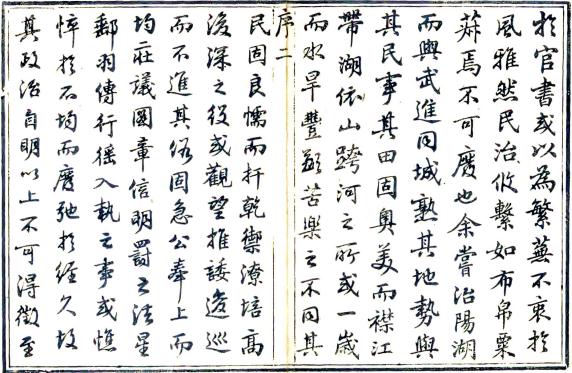 於官書或以為繁蕪不衷於
風雅然民治攸繫如布帛粟
菽焉不可廢也余嘗治陽湖
而與武進同城熟其地勢與
其民事其田固奧美而襟江
帶湖依山跨河之所或一歲
而水旱豐歉苦樂之不同其
序二
民固良懦而扞乾禦潦培高
浚深之役或觀望推諉逡巡
而不進其俗固急公奉上而
均莊議圖章信明罰之法星
郵羽傳行徭入執之事或憔
悴於不均而廢弛於經久故
其政治自明以上不可得徵至